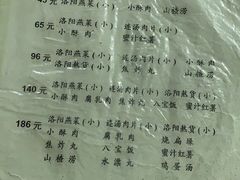 45元 洛阳燕菜(小) 连汤肉片(小)
小酥肉 山楂涝
65元 洛阳燕菜(小) 连汤肉片(小)
小酥肉 蜜汁红薯
96元 洛阳燕菜(小) 连汤肉片(小)
洛阳熬货(小) 蜜汁红薯
焦炸丸 山楂涝
140元 洛阳燕菜(小) 连汤肉片(小) 洛阳熬货(小)
小酥肉 腐乳肉 八宝饭 蜜汁红薯
186元 洛阳燕菜(小) 连汤肉片(小) 洛阳熬货(小)
小酥肉 腐乳肉 烧扁垛
焦炸丸 八宝饭 蜜汁红薯
山楂涝 水漤丸 鸡蛋汤